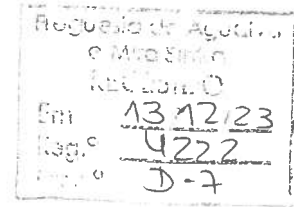 Freguesia de Agualva
e Mira Sintra
Em 13 12 23
Reg.º 4222
D-7